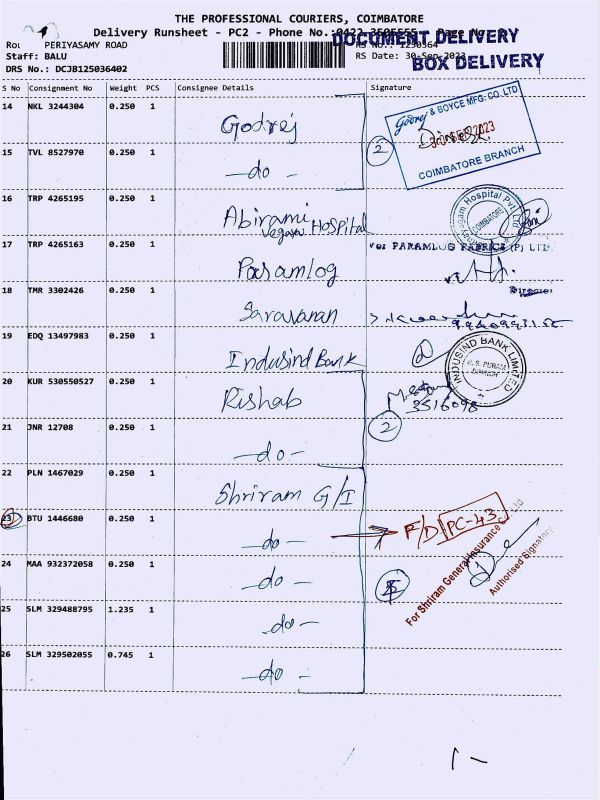 THE PROFESSIONAL COURIERS, COIMBATORE
Delivery Runsheet - PC2 - Phone No.:0422
DOCUMENT DELIVERY
PERIYASAMY ROAD
Staff: BALU
RS Date: 30-Sep-2023
BOX DELIVERY
DRS No.: DCJB125036402
S No Consignment No Weight PCS Consignee Details Signature
14 NKL 3244304 0.250 1 Godrej
Godrej & BOYCE MFG. CO. LTD
COIMBATORE BRANCH
15 TVL 8527970 0.250 1 -do- 2
16 TRP 4265195 0.250 1 Abirami Hospital
Hospital Pvt. Ltd
COIMBATORE
17 TRP 4265163 0.250 1 Paramlog
For PARAMLOG FABRICS (P) LTD.
Director
18 TMR 3302426 0.250 1 Saravanan
19 EDQ 13497983 0.250 1 Indusind Bank
INDUSIND BANK LIMITED
R.S. PURAM
BRANCH
20 KUR 530550527 0.250 1 Rishab
3516098
21 JNR 12708 0.250 1 -do- 2
22 PLN 1467029 0.250 1 Shriram G/I
23 BTU 1446680 0.250 1 -do- F/D PC-43
For Shriram General Insurance Co. Ltd
Authorised Signatory
24 MAA 932372058 0.250 1 -do-
25 SLM 329488795 1.235 1 -do-
26 SLM 329502055 0.745 1 -do-